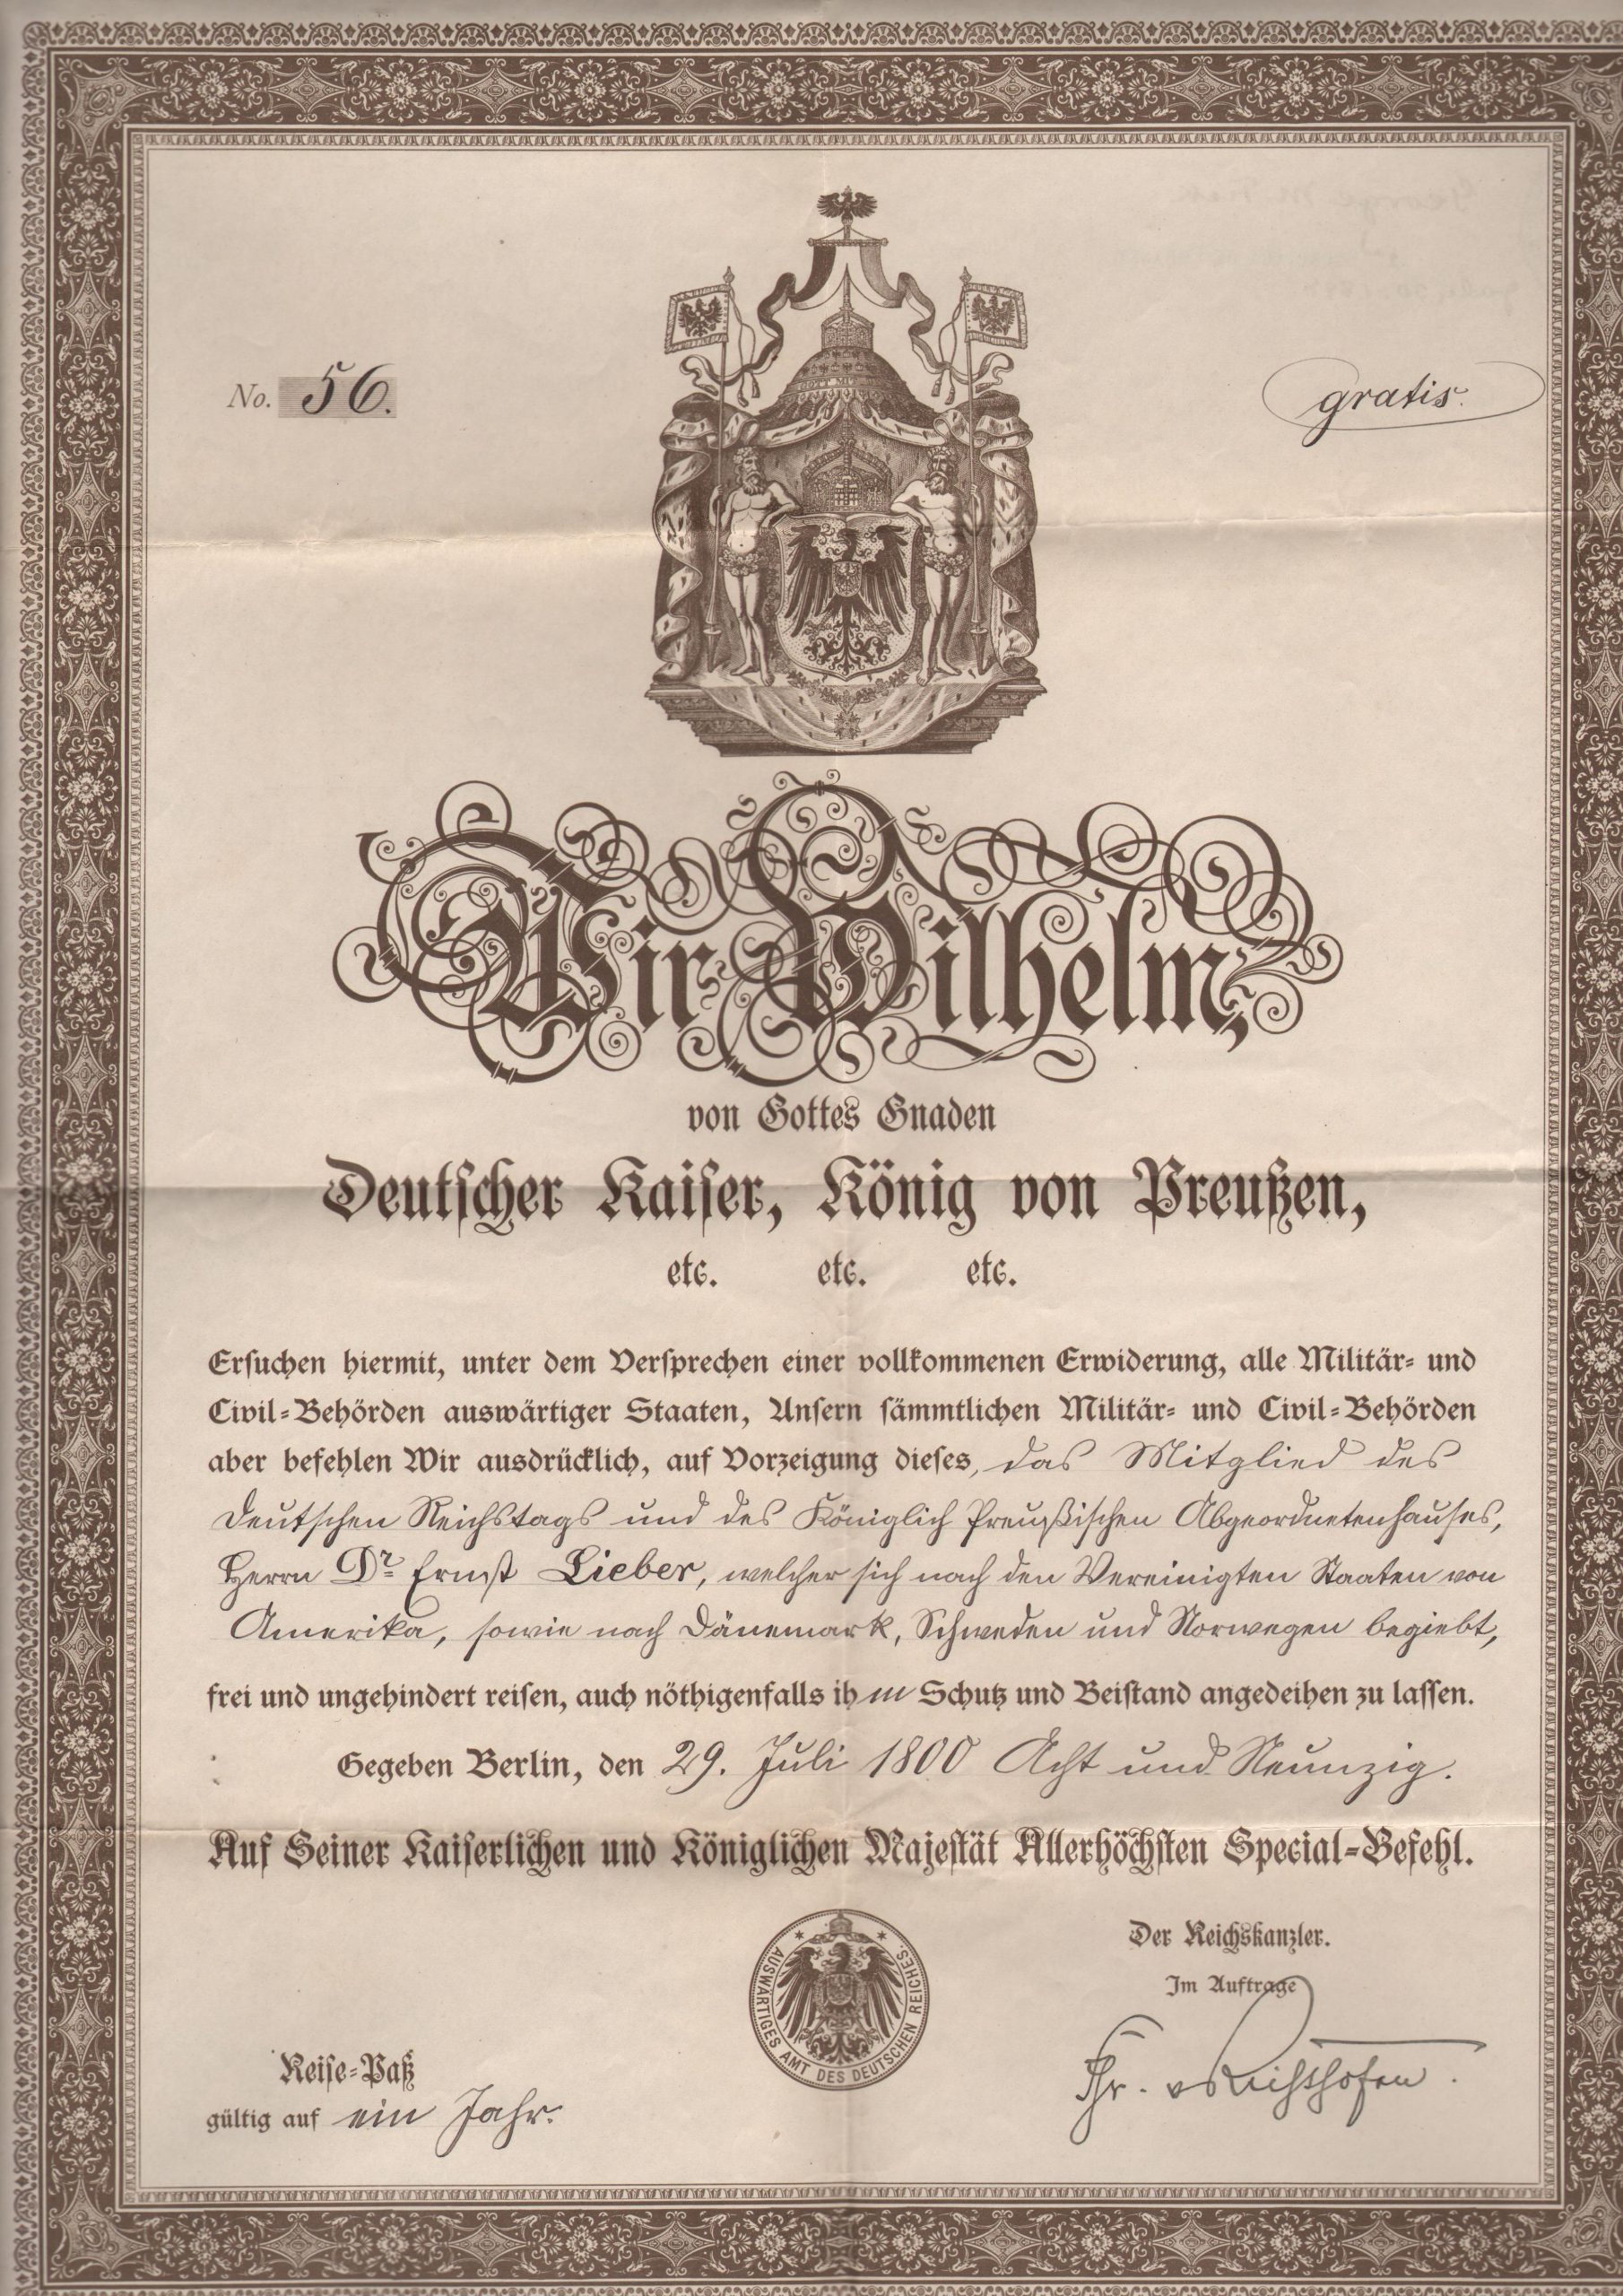 No. 56.
gratis.
GOTT MIT
Wir Wilhelm,
von Gottes Gnaden
Deutscher Kaiser, König von Preußen,
etc. etc. etc.
Ersuchen hiermit, unter dem Versprechen einer vollkommenen Erwiderung, alle Militär- und
Civil-Behörden auswärtiger Staaten, Unsern sämmtlichen Militär- und Civil-Behörden
aber befehlen Wir ausdrücklich, auf Vorzeigung dieses, das Mitglied des
Deutschen Reichstags und des Königlich Preußischen Abgeordnetenhauses,
Herrn Dr. Ernst Lieber, welcher sich nach den Vereinigten Staaten von
Amerika, sowie nach Dänemark, Schweden und Norwegen begiebt,
frei und ungehindert reisen, auch nöthigenfalls ihm Schutz und Beistand angedeihen zu lassen.
Gegeben Berlin, den 29. Juli 1800 Acht und Neunzig.
Auf Seiner Kaiserlichen und Königlichen Majestät Allerhöchsten Special-Befehl.
Der Reichskanzler.
Im Auftrage
AUSWÄRTIGES AMT DES DEUTSCHEN REICHES.
Fhr. v Richthofen.
Reise-Paß
gültig auf ein Jahr.